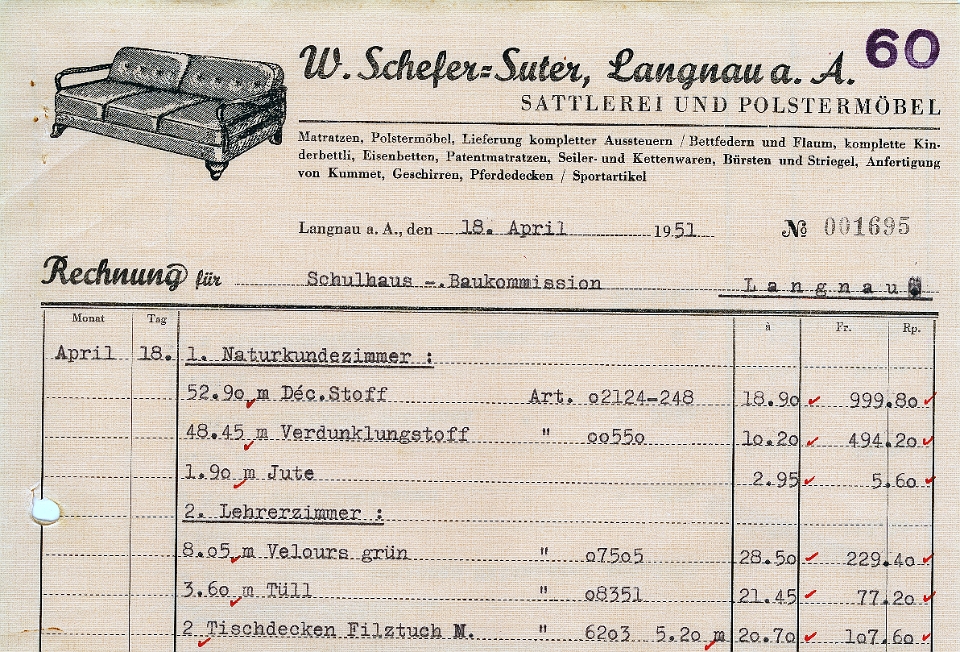 60
W. Schefer-Suter, Langnau a. A.
SATTLEREI UND POLSTERMÖBEL
Matratzen, Polstermöbel, Lieferung kompletter Aussteuern / Bettfedern und Flaum, komplette Kin-
derbettli, Eisenbetten, Patentmatratzen, Seiler- und Kettenwaren, Bürsten und Striegel, Anfertigung
von Kummet, Geschirren, Pferdedecken / Sportartikel
Langnau a. A., den 18. April 1951 № 001695
Rechnung für Schulhaus -.Baukommission Langnau
Monat Tag à Fr. Rp.
April 18. 1. Naturkundezimmer :
52.90 m Déc.Stoff Art. o2124-248 18.90 999.80
48.45 m Verdunklungstoff " oo550 10.20 494.20
1.90 m Jute 2.95 5.60
2. Lehrerzimmer :
8.05 m Velours grün " o7505 28.50 229.40
3.60 m Tüll " o8351 21.45 77.20
2 Tischdecken Filztuch M. " 6203 5.20 m 20.70 107.60